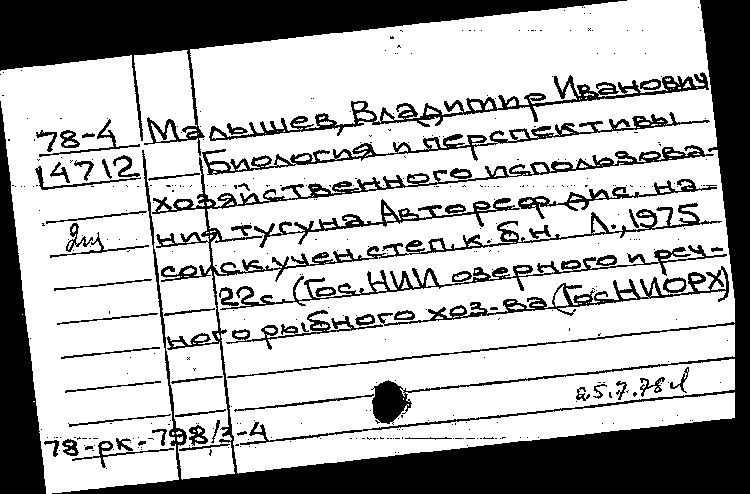 78-4 Малышев, Владимир Иванович
14712 Биология и перспективы
хозяйственного использова-
ния тугуна. Автореф. дис. на
соиск. учен. степ. к. б. н. Л., 1975.
22с. (Гос. НИИ озерного и реч-
ного рыбного хоз-ва (ГосНИОРХ)
25.7.78
78-рк-798/3-4